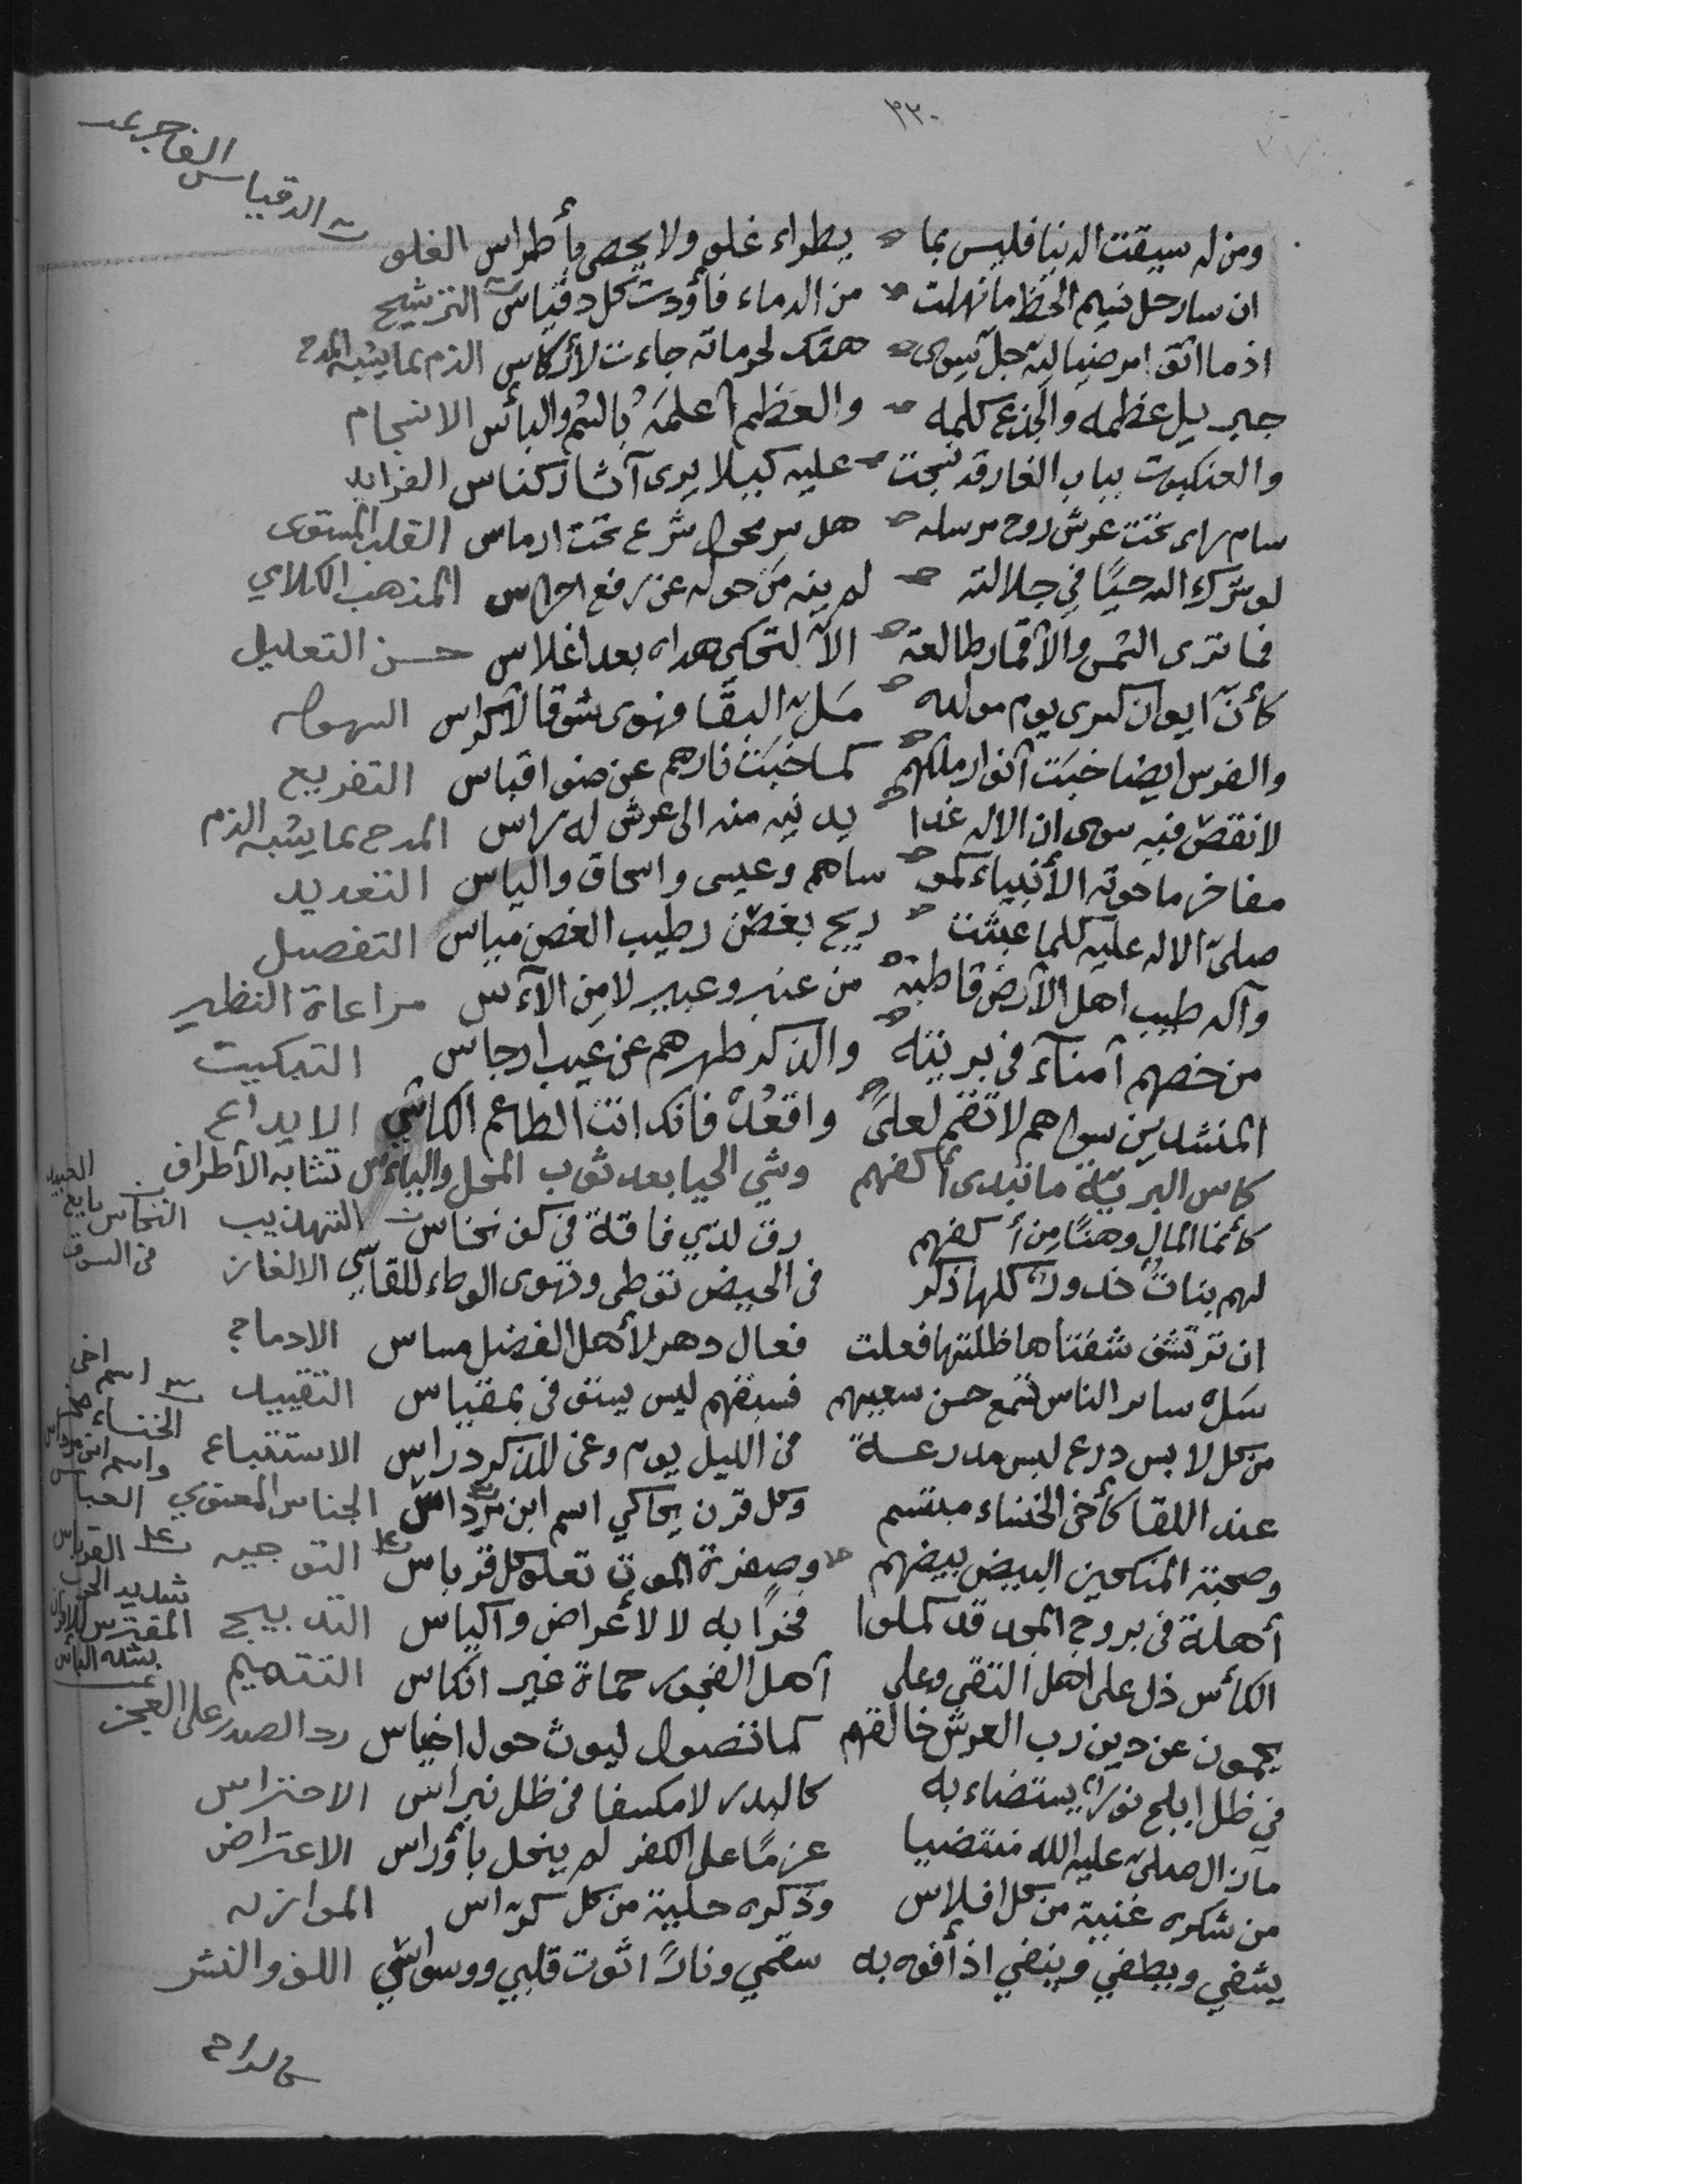 ٣٢٠
الدقياس الفاجر عد
ومن له سيقت الدنيا فليس بما يطراء غلو ولا يحصى بأطراس الغلو
ان سار حل نيهم الحظ ما نهلت من الدماء فأودت كل دقياس الترشيح
اذ ما اتق امر جل سوى هتك لحرماته جاءت لأركاس الذم بما يشبه المدح
جبريل عظمه والجذع كلمه والعظم اعلمه بالسم والبأس الانسجام
والعنكبوت بباب الغار قد نسجت عليه كيلا يرى آثار كناس الفرايد
سام تحت عرش روح مرسله هل سر محول شرع تحت ارماس القلب المستوى
لو شرك الله حيًا في جلالته لم ينه من حوله عن رفع احراس المذهب الكلامي
فما ترى الشمس والأقمار طالعة الا لتحكي هداه بعد اغلاس حسن التعليل
كأن ايوان كسرى يوم مولده مل البقا فهوى شوقا السهولة
والفرس ايضا خبت انوار ملكهم كما خبت نارهم عن ضوا قباس التفريع
لا نقص فيه سوى ان الاله غدا يدنيه منه الى عرش له راس المدح بما يشبه الذم
مفاخر ما حوته الأنبياء كمو ساهم وعيسى واسحاق والياس التعديد
صلى الاله عليه كلما عبثت ريح بغصن رطيب الغصن مياس التفصيل
وآله طيب اهل الأرض قاطبة من عنبر وعبير لا من الآس مراعاة النظير
من خصهم آمناء في بريته والذكر طهرهم عن عيب ارجاس التبكيت
المنشدين سواهم لا تقم لعلى واقعد فانك انت الطاعم الكاسي الايداع
كاس البرية ما تبدى أكفهم وشي الحيا بعد ثوب المحل والباس تشابه الأطراف
كأنما المال وهنًا من أكفهم رق لذي فاقة في كف نخاس التهذيب النخاس بايع العبيد في السوق
لهم بنات خدور كلها ذكر في الحيض توطى وتهوى الوطاء للقاسي الالغاز
ان ترتشف شفتاها ظلتها فعلت فعال دهر لأهل الفضل مساس الادماج
سل ساير الناس تسمع حسن سعيهم فسبقهم ليس يستوفى بمقياس التقييد
من كل لابس درع لبس مدرعة من الليل يوم وعى للذكر دراس الاستتباع
عند اللقا كأخى الخنساء مبتسم وكل قرن يحاكي اسم ابن مرداس الجناس المعنوي
اسم اخى الخنساء واسم ابن مرداس العباس
وصحبة المنكحين البيض بيضهم وصفرة الموت تعلو كل قرباس التوجيه
أهلة في بروج المجد قد كملوا فخرًا به لا لأعراض واكياس التدبيج
الكأس ذل على اهل التقى وعلى أهل الفجور حماة غير انكاس التتميم
يحمون عن دين رب العرش خالقهم كما تصول ليوث حول اخياس رد الصدر على العجز
في ظل ابلج نور يستضاء به كالبدر لا مكسفا في ظل نبراس الاحتراس
مازال صلى عليه الله منتضيا عزمًا على الكفر لم ينحل بأوراس الاعتراض
من شكره غنية من كل افلاس وذكره حلية من كل كراس الموازنه
يشفي ويطفي وينفي اذ أفوه به سقمي ونارًا اثوت قلبي ووسواسي اللف والنشر